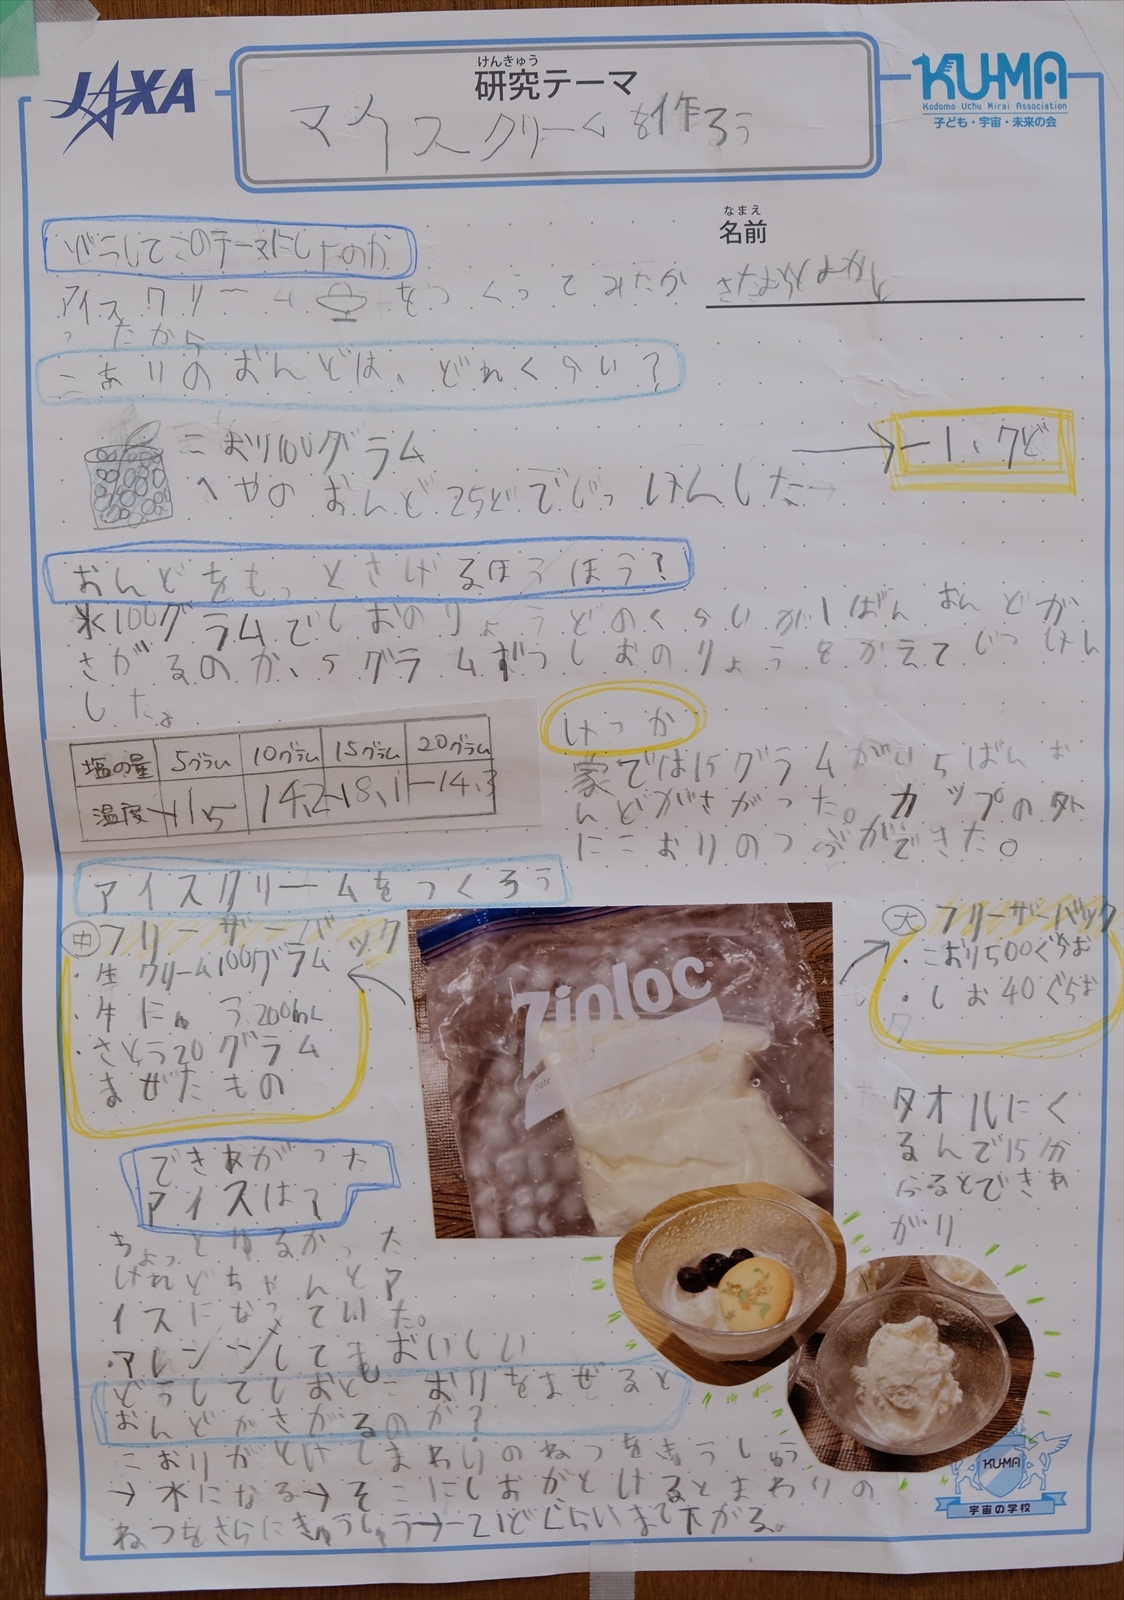 JAXA
けんきゅう
研究テーマ
アイスクリームを作ろう
KU-MA
Kodomo Uchu Mirai Association
子ども・宇宙・未来の会
なまえ
名前
どうしてこのテーマにしたのか
アイスクリームをつくってみたか
ったから
こおりのおんどは、どれくらい?
こおり100グラム
へやのおんど25どでじっけんした
→ -1、7ど
おんどをもっとさげるほうほう?
氷100グラムでしおのりょうどのくらいが1ばんおんどが
さがるのか、5グラムずつしおのりょうをかえてじっけん
した。
塩の量 5グラム 10グラム 15グラム 20グラム
温度 -11,5 14,2 -18、1 -14.3
けっか
家では15グラムがいちばんお
んどがさがった。カップの外
にこおりのつぶができた。
アイスクリームをつくろう
中 フリーザーバック
・生クリーム100グラム
・牛にゅう200mL
・さとう20グラム
まぜたもの
Ziploc
大 フリーザーバック
・こおり500ぐらむ
・しお40ぐらむ
タオルにく
るんで15分
ふるとできあ
がり
できあがった
アイスは?
ちょっとゆるかった
けれどちゃんとア
イスになっていた。
・アレンジしてもおいしい
どうしてしおとこおりをまぜると
おんどがさがるのか?
こおりがとけてまわりのねつをきゅうしゅう
→水になる→そこにしおがとけるとまわりの
ねつをさらにきゅうしゅう→-21どぐらいまで下がる。
KU-MA
宇宙の学校